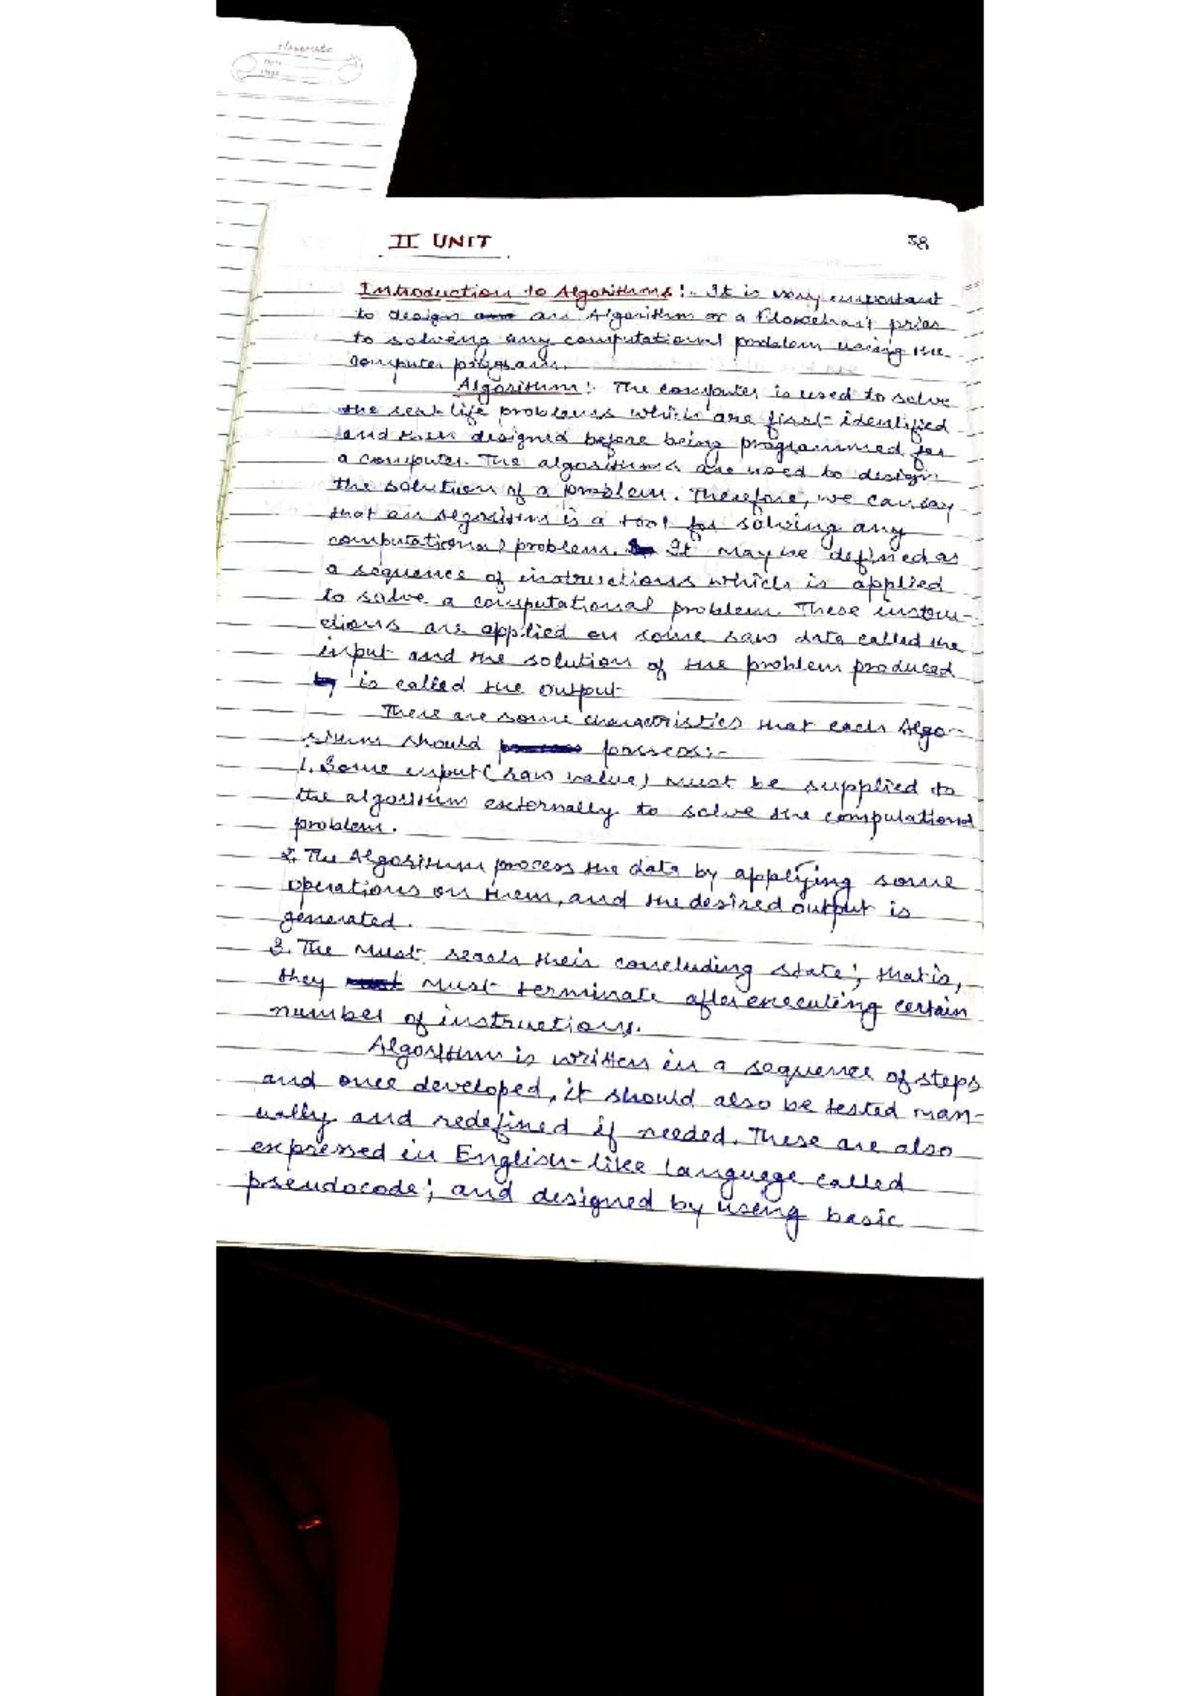 Classmate
Date
Page
II UNIT
38
Introduction to Algorithms:- It is very important
to design an Algorithm or a Flowchart prior
to solving any computational problem using the
computer program.
Algorithm:- The computer is used to solve
the real life problems which are first identified
and then designed before being programmed for
a computer. The algorithms are used to design
the solution of a problem. Therefore, we can say
that an algorithm is a tool for solving any
computational problem. It may be defined as
a sequence of instructions which is applied
to solve a computational problem. These instru-
ctions are applied on some raw data called the
input and the solution of the problem produced
is called the output
There are some charactristics that each Algo-
rithm should possess:-
1. Some input (raw value) must be supplied to
the algorithm externally to solve the computational
problem.
2. The Algorithm process the data by applying some
operations on them, and the desired output is
generated.
3. The Must reach their concluding state; that is,
they must terminate after executing certain
number of instructions.
Algorithm is written in a sequence of steps
and once developed, it should also be tested man-
ually and redefined if needed. These are also
expressed in English-like language called
pseudocode; and designed by using basic